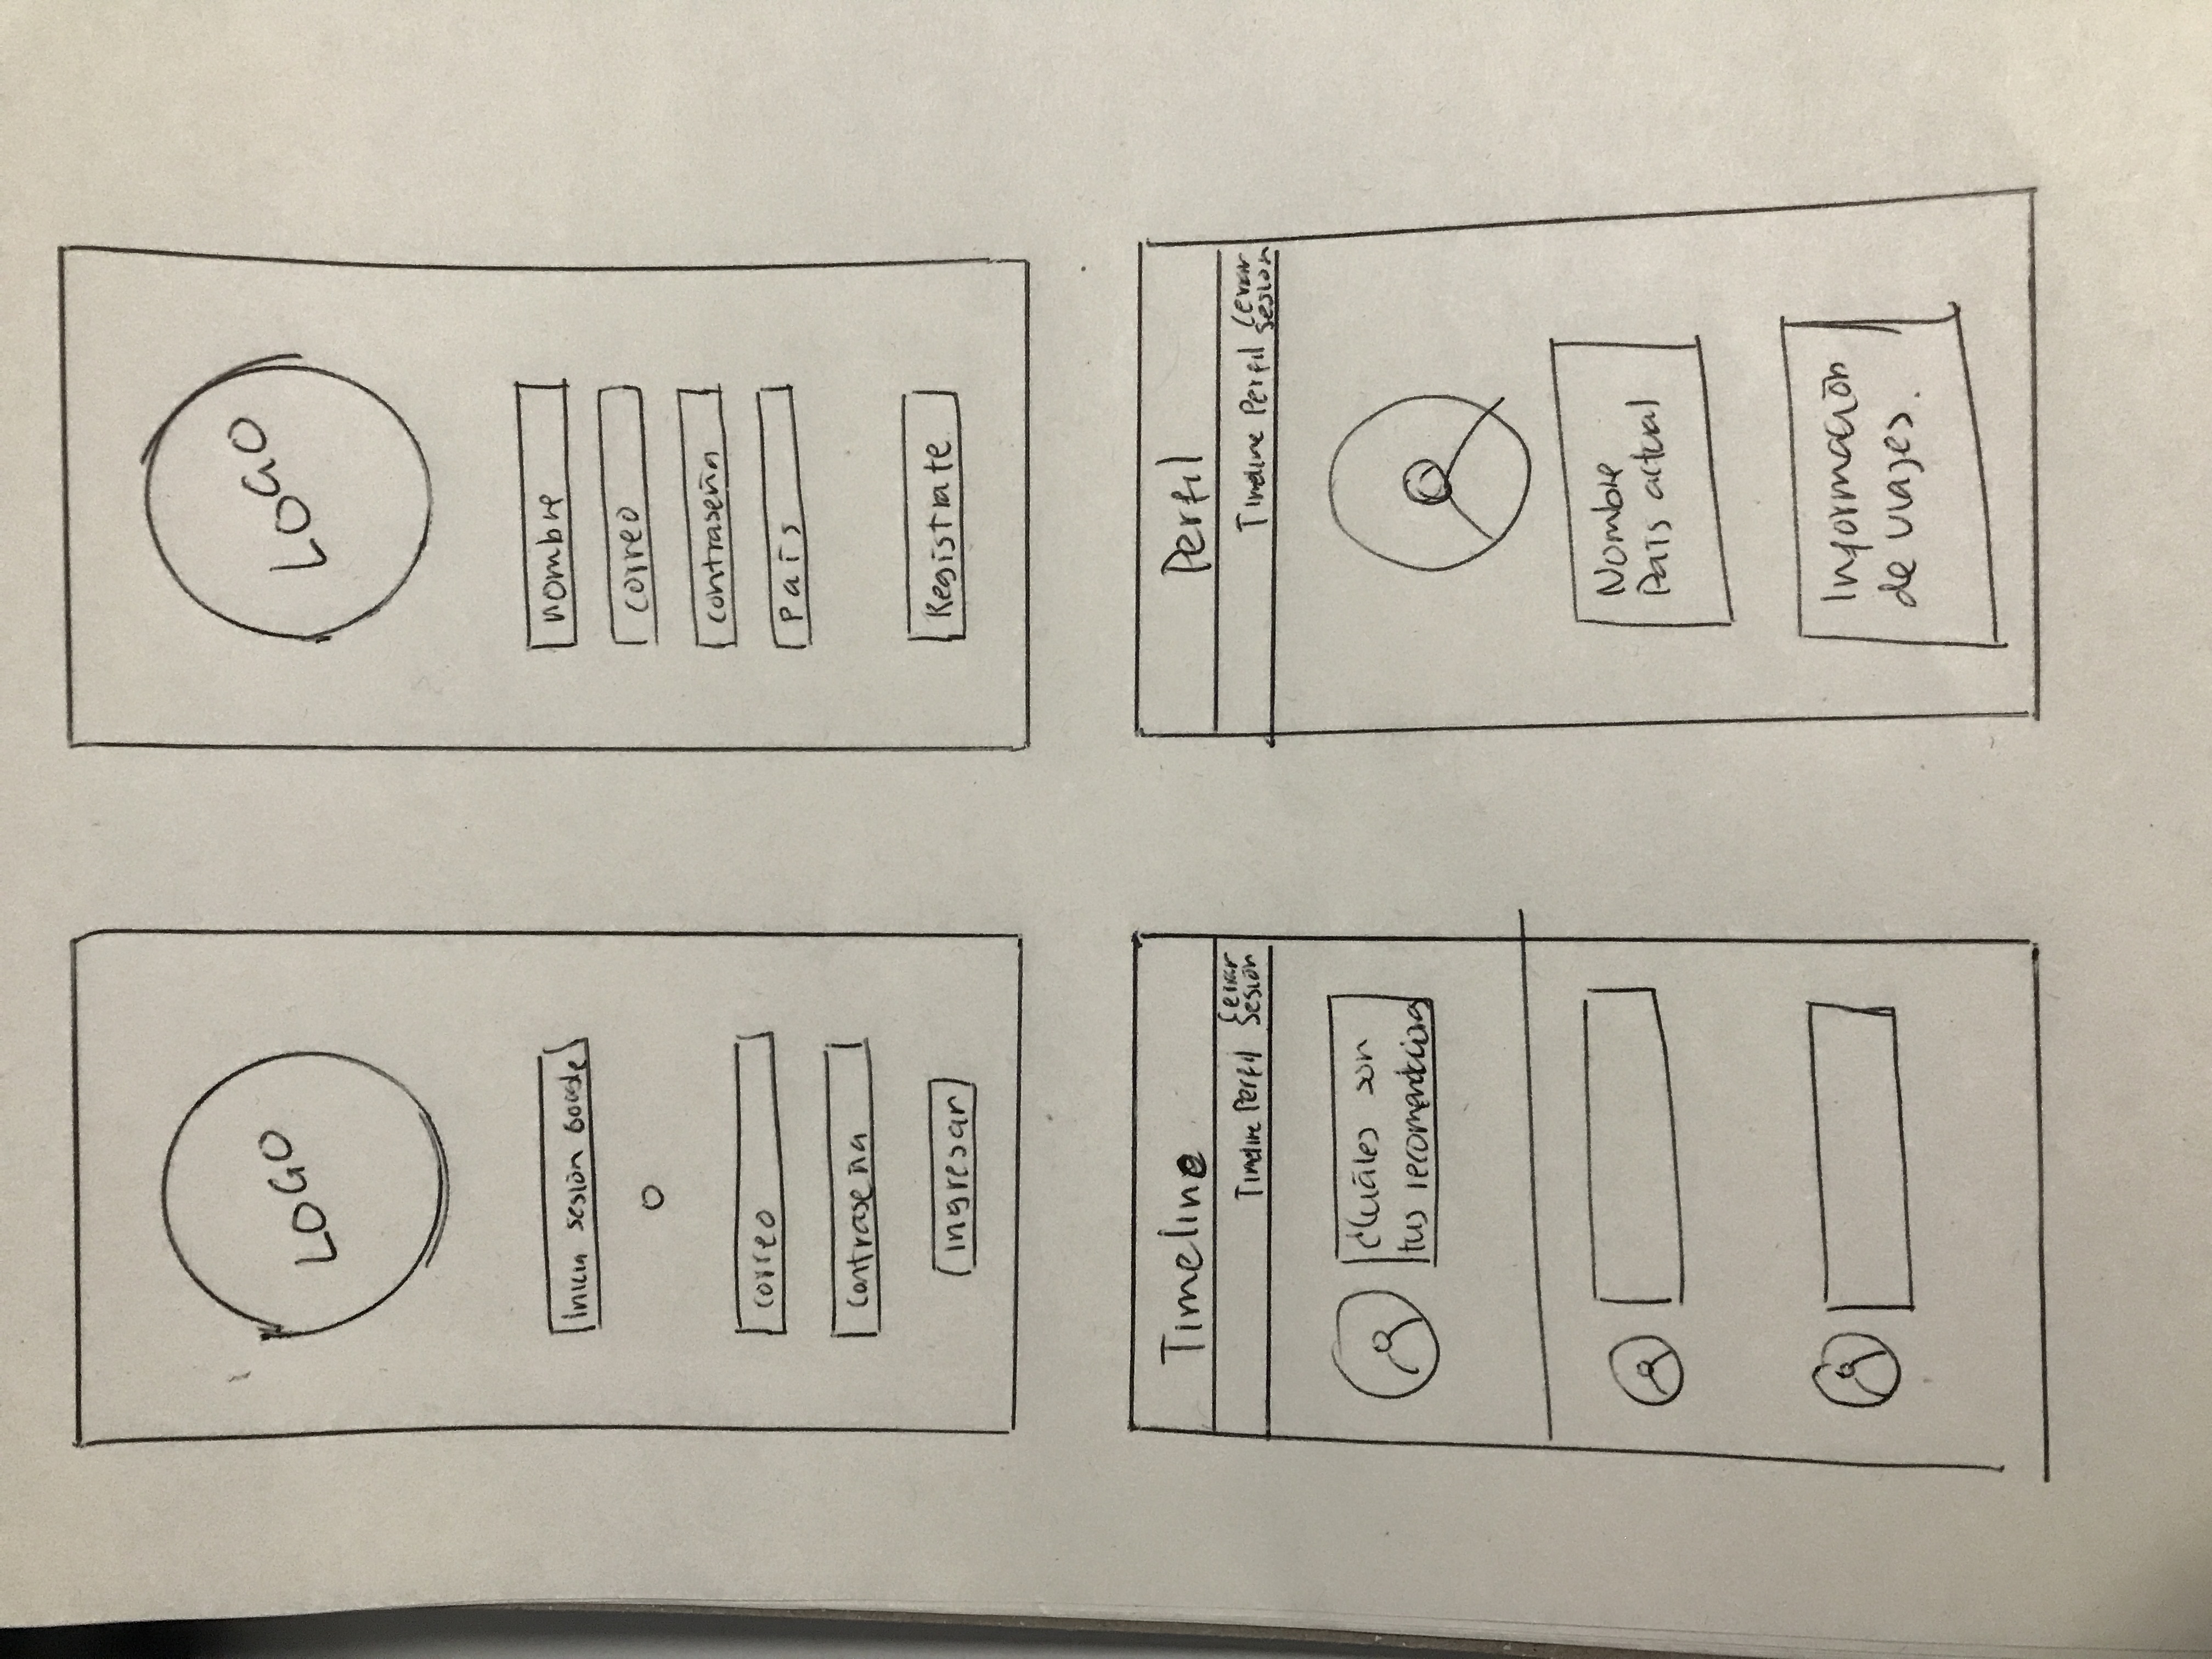 LOGO
Inicia sesión Google
o
correo
contraseña
ingresar
LOGO
nombre
correo
contraseña
País
Registrate
Timeline
Timeline Perfil Cerrar
Sesión
¿Cuáles son
tus recomendaciones
Perfil
Timeline Perfil Cerrar
Sesión
Nombre
País actual
Información
de viajes.